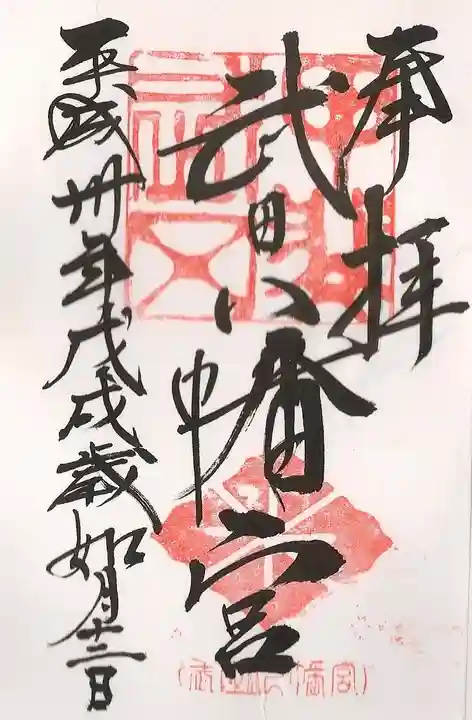 奉拝
武田八幡宮
平成卅年戊戌歳如月十二日
(武田八幡宮)